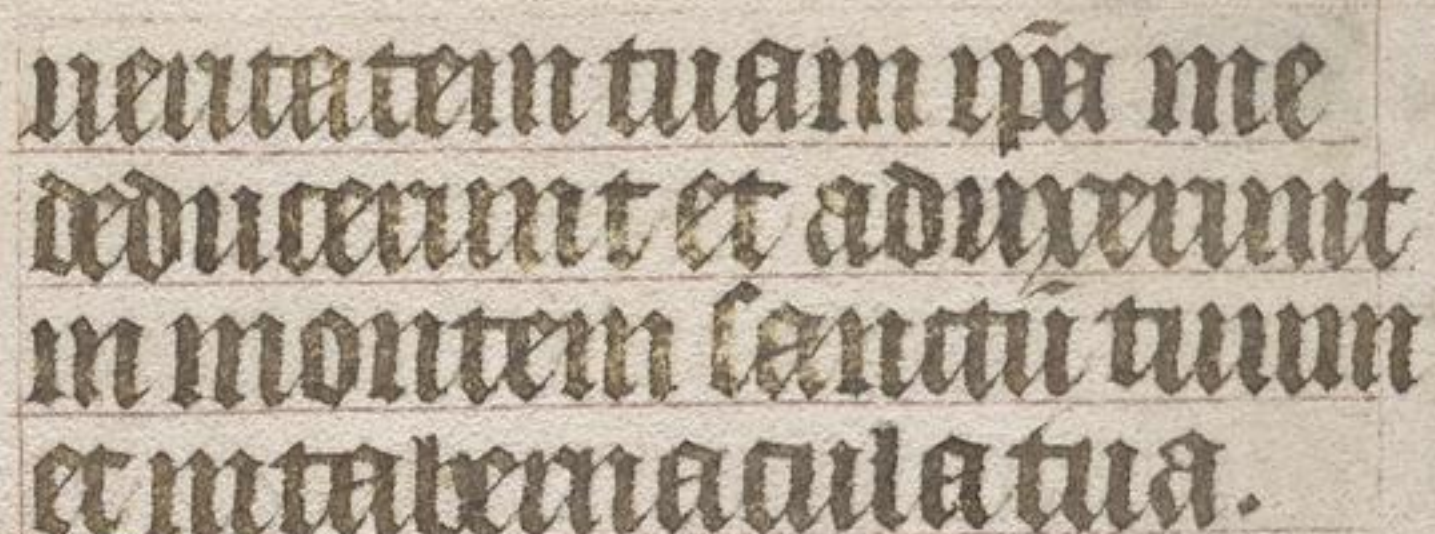 ueritatem tuam ip̄a me
deducerunt et aduxerunt
in montem sanctū tuum
et in tabernacula tua.